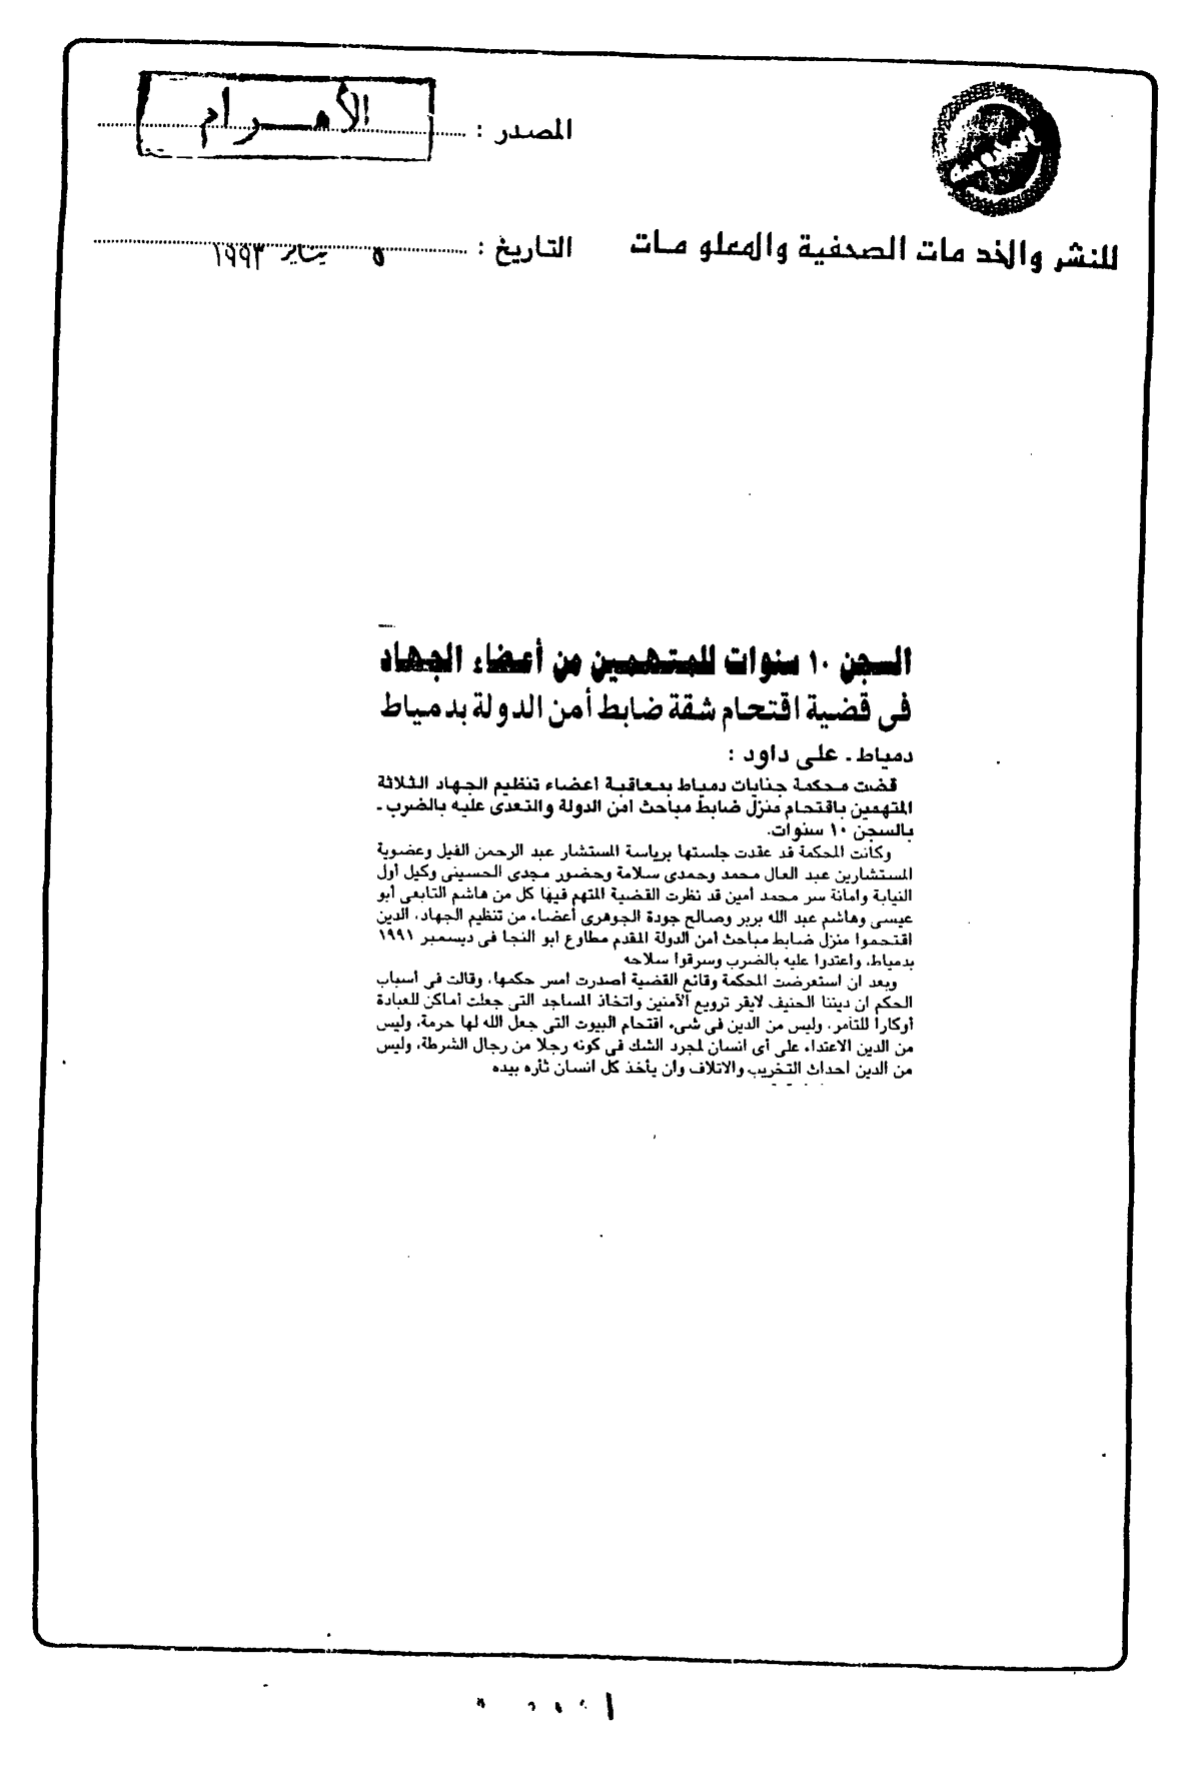 المصدر : الأهرام
للنشر والخدمات الصحفية والمعلومات
التاريخ : ٥ يناير ١٩٩٣
السجن ١٠ سنوات للمتهمين من أعضاء الجهاد
فى قضية اقتحام شقة ضابط أمن الدولة بدمياط
دمياط ـ على داود :
قضت محكمة جنايات دمياط بمعاقبة أعضاء تنظيم الجهاد الثلاثة
المتهمين باقتحام منزل ضابط مباحث امن الدولة والتعدى عليه بالضرب ـ
بالسجن ١٠ سنوات.
وكانت المحكمة قد عقدت جلستها برياسة المستشار عبد الرحمن الفيل وعضوية
المستشارين عبد العال محمد وحمدى سلامة وحضور مجدى الحسينى وكيل أول
النيابة وامانة سر محمد أمين قد نظرت القضية المتهم فيها كل من هاشم التابعى أبو
عيسى وهاشم عبد الله بربر وصالح جودة الجوهرى أعضاء من تنظيم الجهاد، الذين
اقتحموا منزل ضابط مباحث أمن الدولة المقدم مطاوع ابو النجا فى ديسمبر ١٩٩١
بدمياط، واعتدوا عليه بالضرب وسرقوا سلاحه
وبعد ان استعرضت المحكمة وقائع القضية أصدرت امس حكمها، وقالت فى أسباب
الحكم ان ديننا الحنيف لايقر ترويع الآمنين واتخاذ المساجد التى جعلت أماكن للعبادة
أوكارا للتأمر، وليس من الدين فى شىء اقتحام البيوت التى جعل الله لها حرمة، وليس
من الدين الاعتداء على أى انسان لمجرد الشك فى كونه رجلا من رجال الشرطة، وليس
من الدين احداث التخريب والاتلاف وان يأخذ كل انسان ثأره بيده